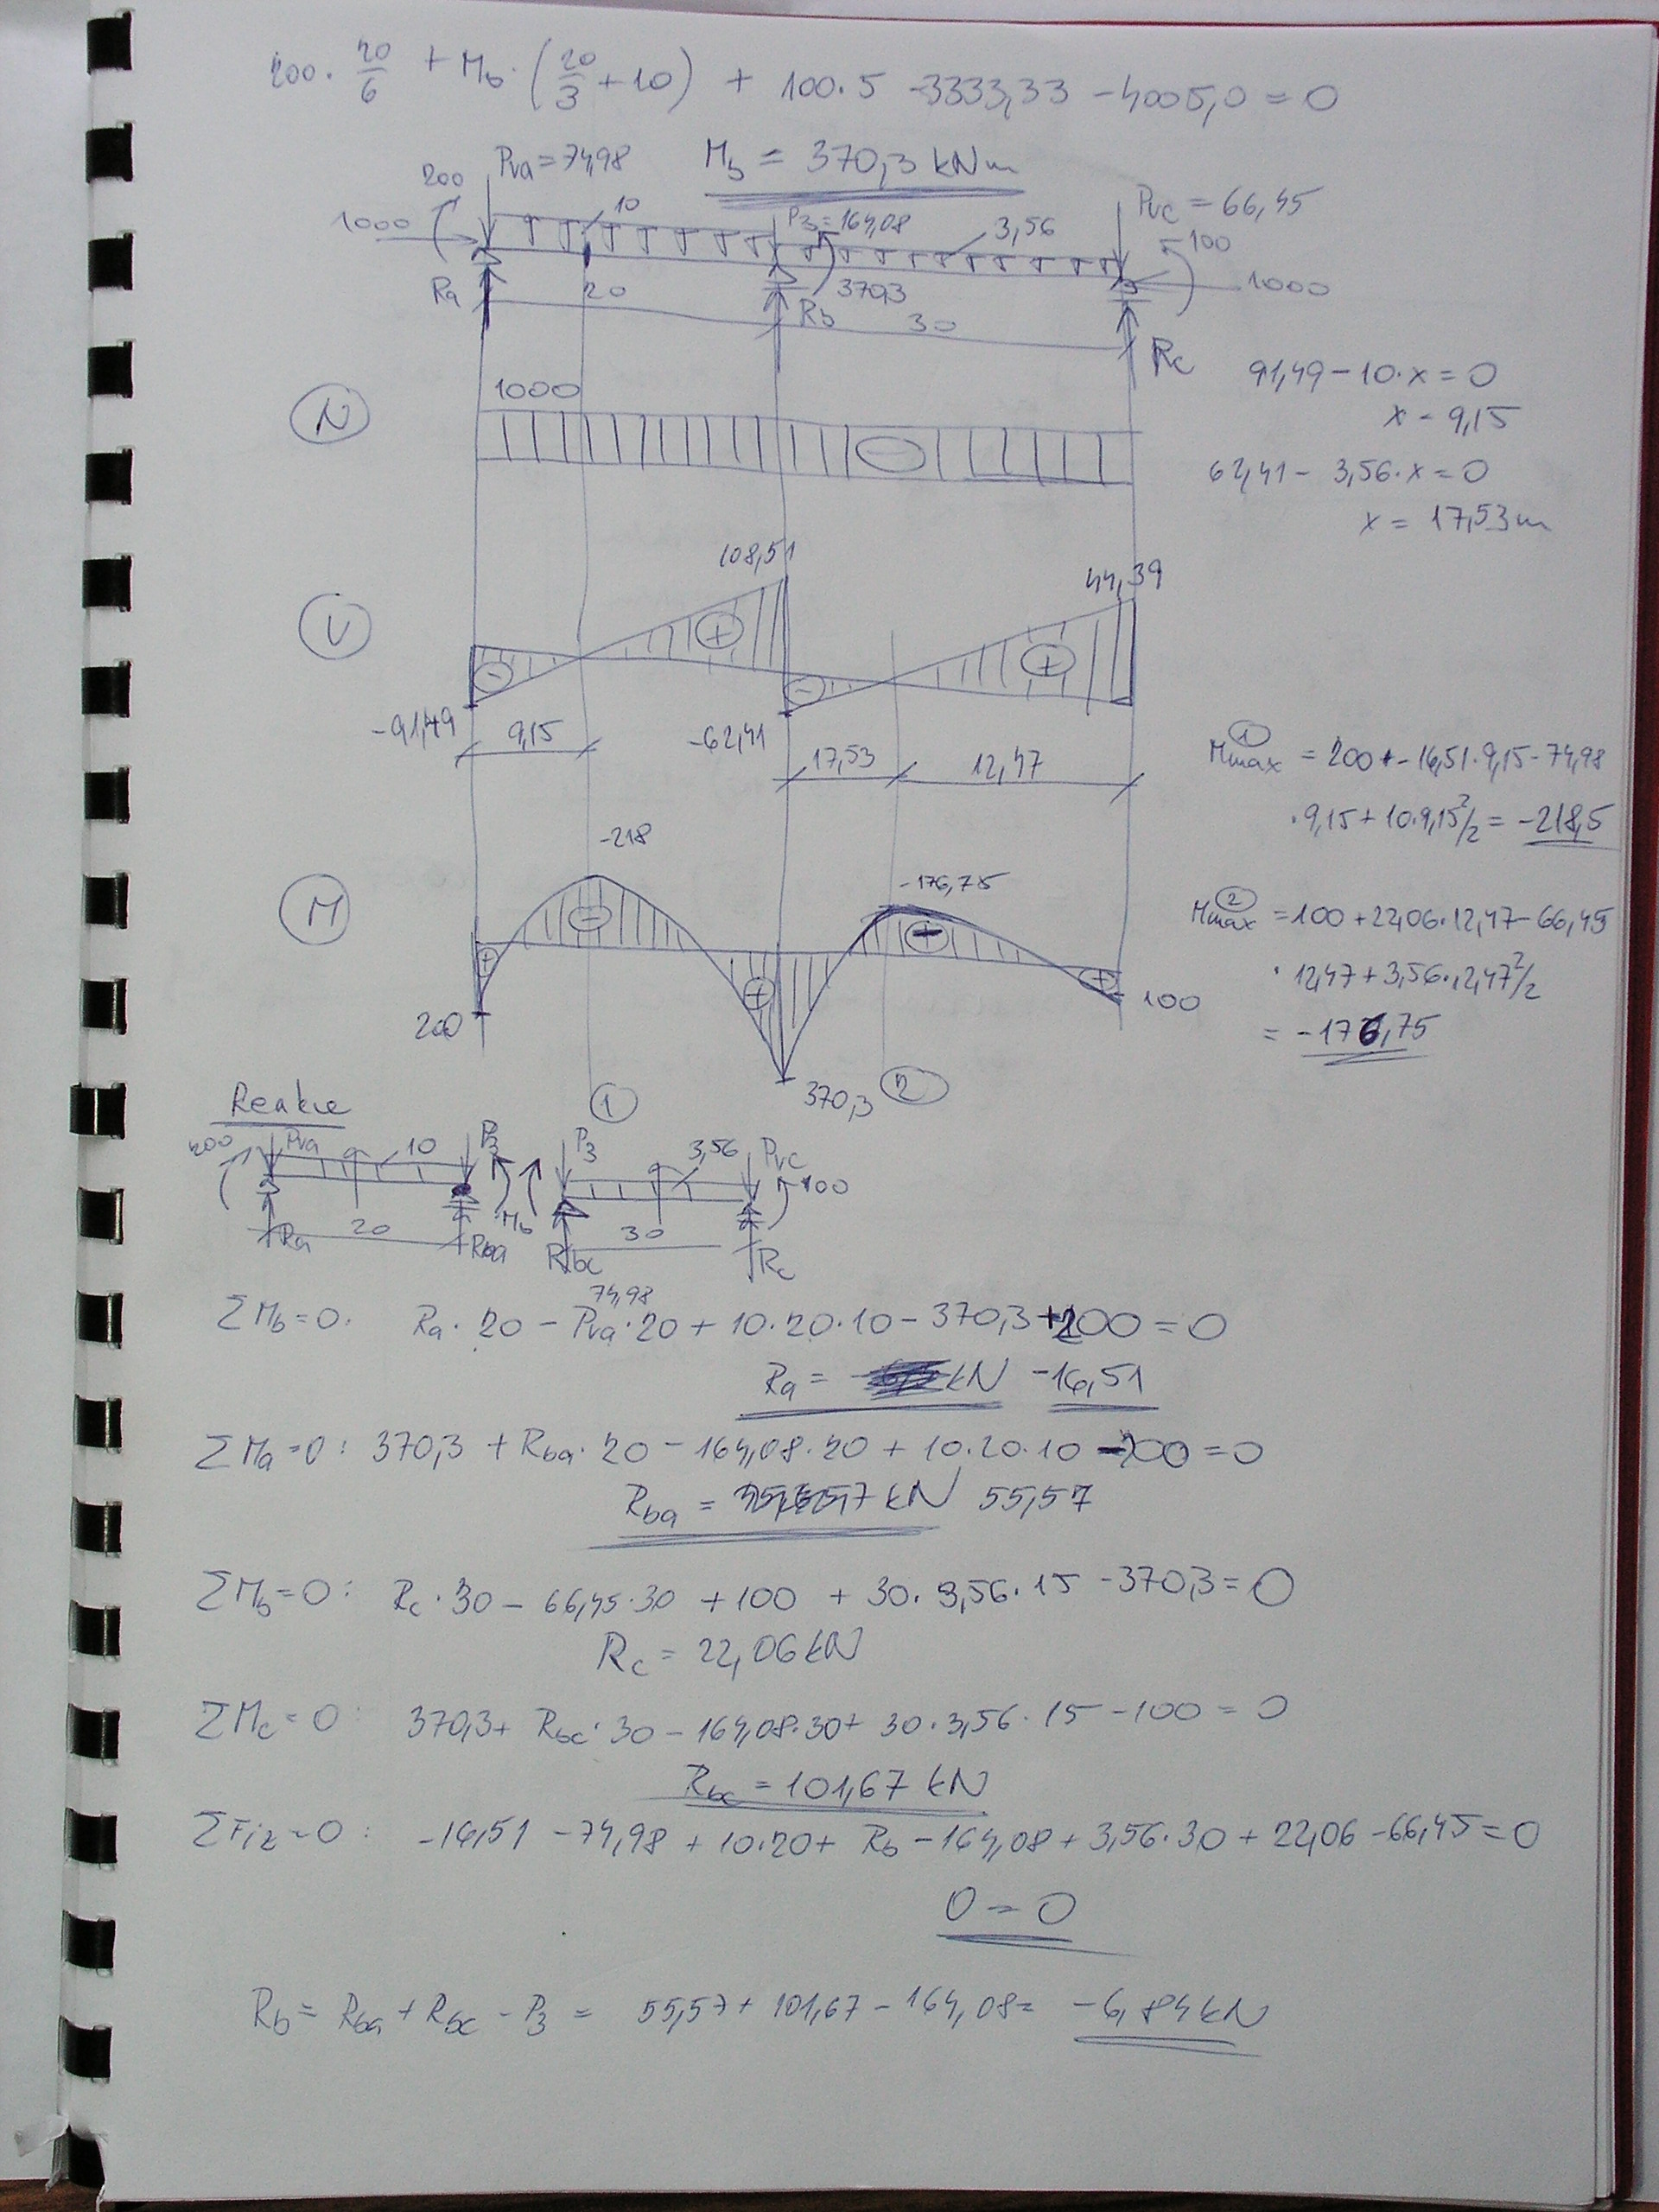 200 · 20/6 + Mb · (20/3 + 10) + 100 · 5 - 3333,33 - 4005,0 = 0
Mb = 370,3 kNm
200 Pva = 74,98
1000
10
P3 = 164,08
3,56
Pvc = 66,45
100
1000
Ra
20
Rb
370,3
30
Rc
91,49 - 10 · x = 0
x = 9,15
62,41 - 3,56 · x = 0
x = 17,53 m
N
1000
-
V
108,51
44,39
-
+
-
+
-91,49
9,15
-62,41
17,53
12,47
Mmax ① = 200 + -16,51 · 9,15 - 74,98
· 9,15 + 10 · 9,15²/2 = -218,5
M
-218
-176,75
+
-
+
+
200
100
370,3
Mmax ② = 100 + 22,06 · 12,47 - 66,45
· 12,47 + 3,56 · 12,47²/2
= -176,75
①
②
Reakcie
200 Pva 10 P3
Ra 20 Rba Mb
P3 3,56 Pvc 100
Rbc 30 Rc
74,98
ΣMb = 0 : Ra · 20 - Pva · 20 + 10 · 20 · 10 - 370,3 + 200 = 0
Ra = kN -16,51
ΣMa = 0 : 370,3 + Rba · 20 - 164,08 · 20 + 10 · 20 · 10 - 200 = 0
Rba = kN 55,57
ΣMb = 0 : Rc · 30 - 66,45 · 30 + 100 + 30 · 3,56 · 15 - 370,3 = 0
Rc = 22,06 kN
ΣMc = 0 : 370,3 + Rbc · 30 - 164,08 · 30 + 30 · 3,56 · 15 - 100 = 0
Rbc = 101,67 kN
ΣFiz = 0 : -16,51 - 74,98 + 10 · 20 + Rb - 164,08 + 3,56 · 30 + 22,06 - 66,45 = 0
0 = 0
Rb = Rba + Rbc - P3 = 55,57 + 101,67 - 164,08 = -6,84 kN